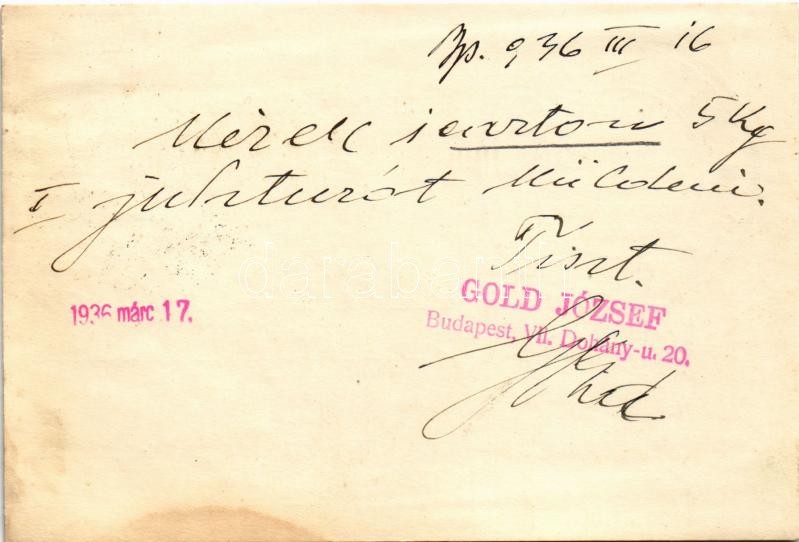 Bp. 936 III 16
Kérek 1 karton 5 Kg
I juhturót küldeni.
Tiszt.
GOLD JÓZSEF
Budapest, VII. Dohány-u. 20.
Gold
1936 márc 17.